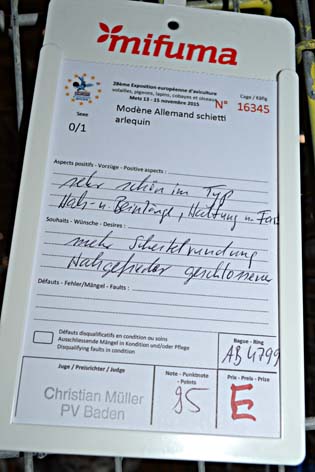 mifuma
28ème Exposition européenne d'aviculture
volailles, pigeons, lapins, cobayes et oiseaux
Metz 13 - 15 novembre 2015
Cage / Käfig
N° 16345
Sexe
0/1
Modène Allemand schietti
arlequin
Aspects positifs - Vorzüge - Positive aspects :
sehr schön im Typ
Hals- u. Beinlänge, Haltung u. Farbe
Souhaits - Wünsche - Desires :
mehr Scheitelrundung
Halsgefieder geschlossener
Défauts - Fehler/Mängel - Faults :
Défauts disqualificatifs en condition ou soins
Ausschliessende Mängel in Kondition und/oder Pflege
Disqualifying faults in condition
Bague - Ring
AB 4799
Juge / Preisrichter / Judge
Christian Müller
PV Baden
Note - Punktnote
- Points
95
Prix - Preis - Prize
E